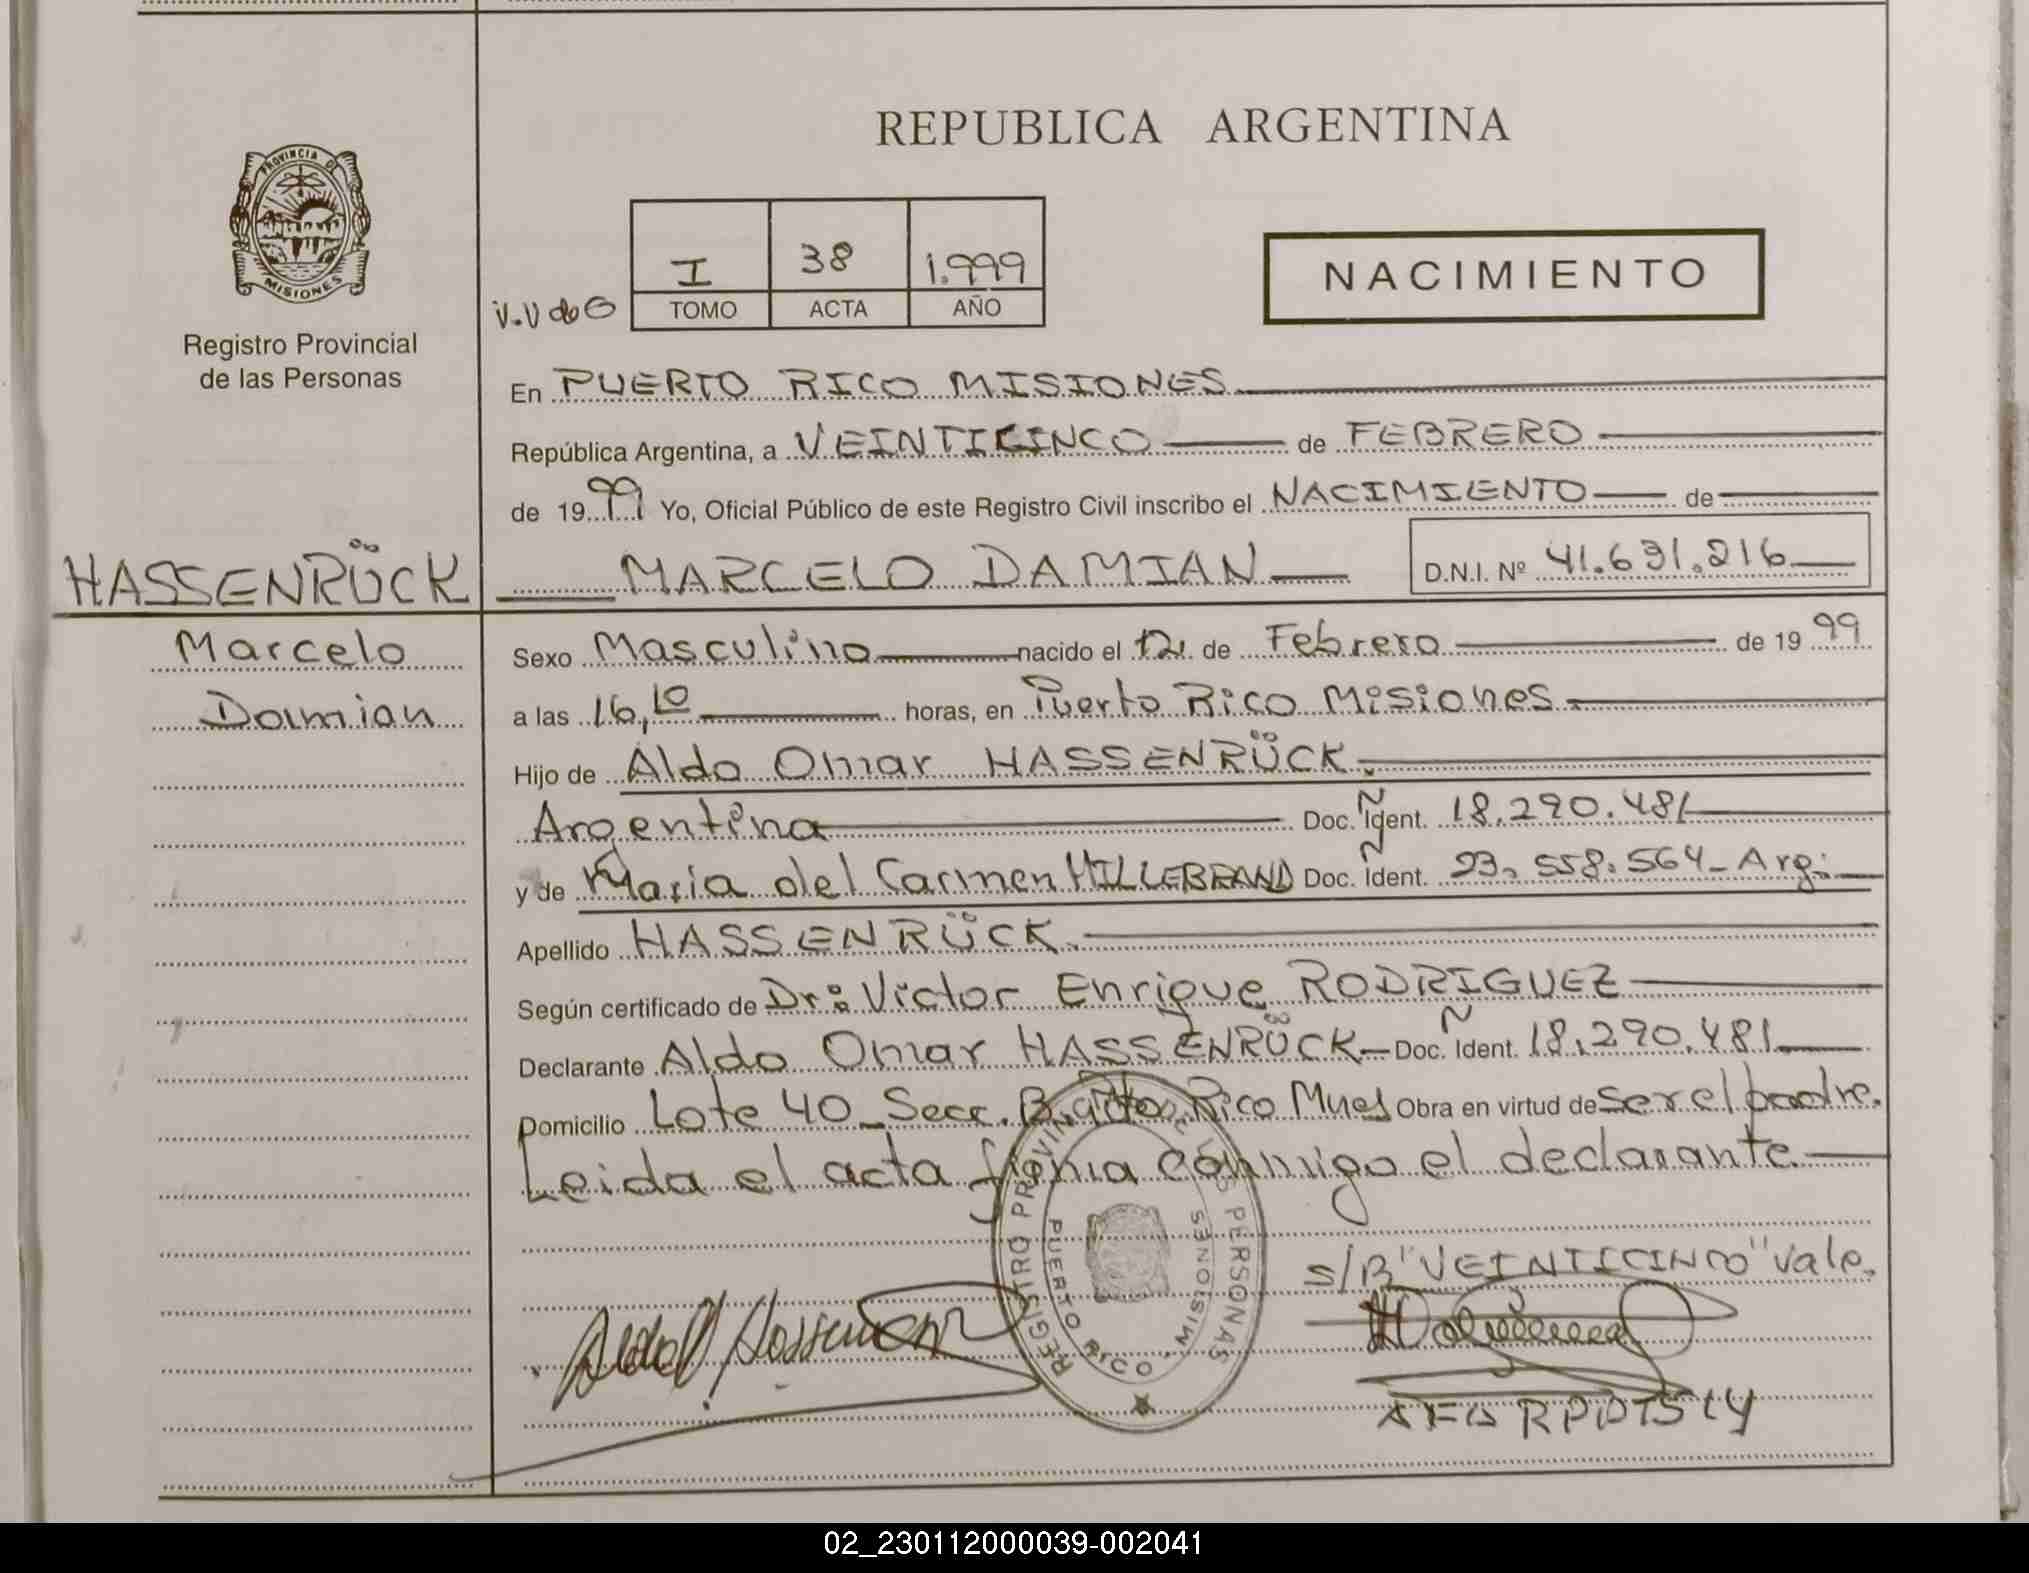 REPUBLICA ARGENTINA
PROVINCIA DE
MISIONES
Registro Provincial
de las Personas
I 38 1.999
TOMO ACTA AÑO
NACIMIENTO
En PUERTO RICO MISIONES
República Argentina, a VEINTICINCO de FEBRERO
de 1999 Yo, Oficial Público de este Registro Civil inscribo el NACIMIENTO de
HASSENRÜCK MARCELO DAMIAN D.N.I. Nº 41.631.216
Marcelo
Damian
Sexo Masculino nacido el 12 de Febrero de 1999
a las 16,10 horas, en Puerto Rico Misiones
Hijo de Aldo Omar HASSENRÜCK.
Argentina Doc. Ident. 18.290.481
y de Maria del Carmen HILLEBRAND Doc. Ident. 23.558.564- Arg:
Apellido HASSENRÜCK.
Según certificado de Dr: Victor Enrique RODRIGUEZ
Declarante Aldo Omar HASSENRÜCK Doc. Ident. 18.290.481
Domicilio Lote 40_ Secc. B. Pto Rico Mnes Obra en virtud de ser el padre.
Leida el acta firma conmigo el declarante
s/B "VEINTICINCO" Vale.
REGISTRO PROVINCIAL DE LAS PERSONAS
PUERTO RICO - MISIONES
02_230112000039-002041